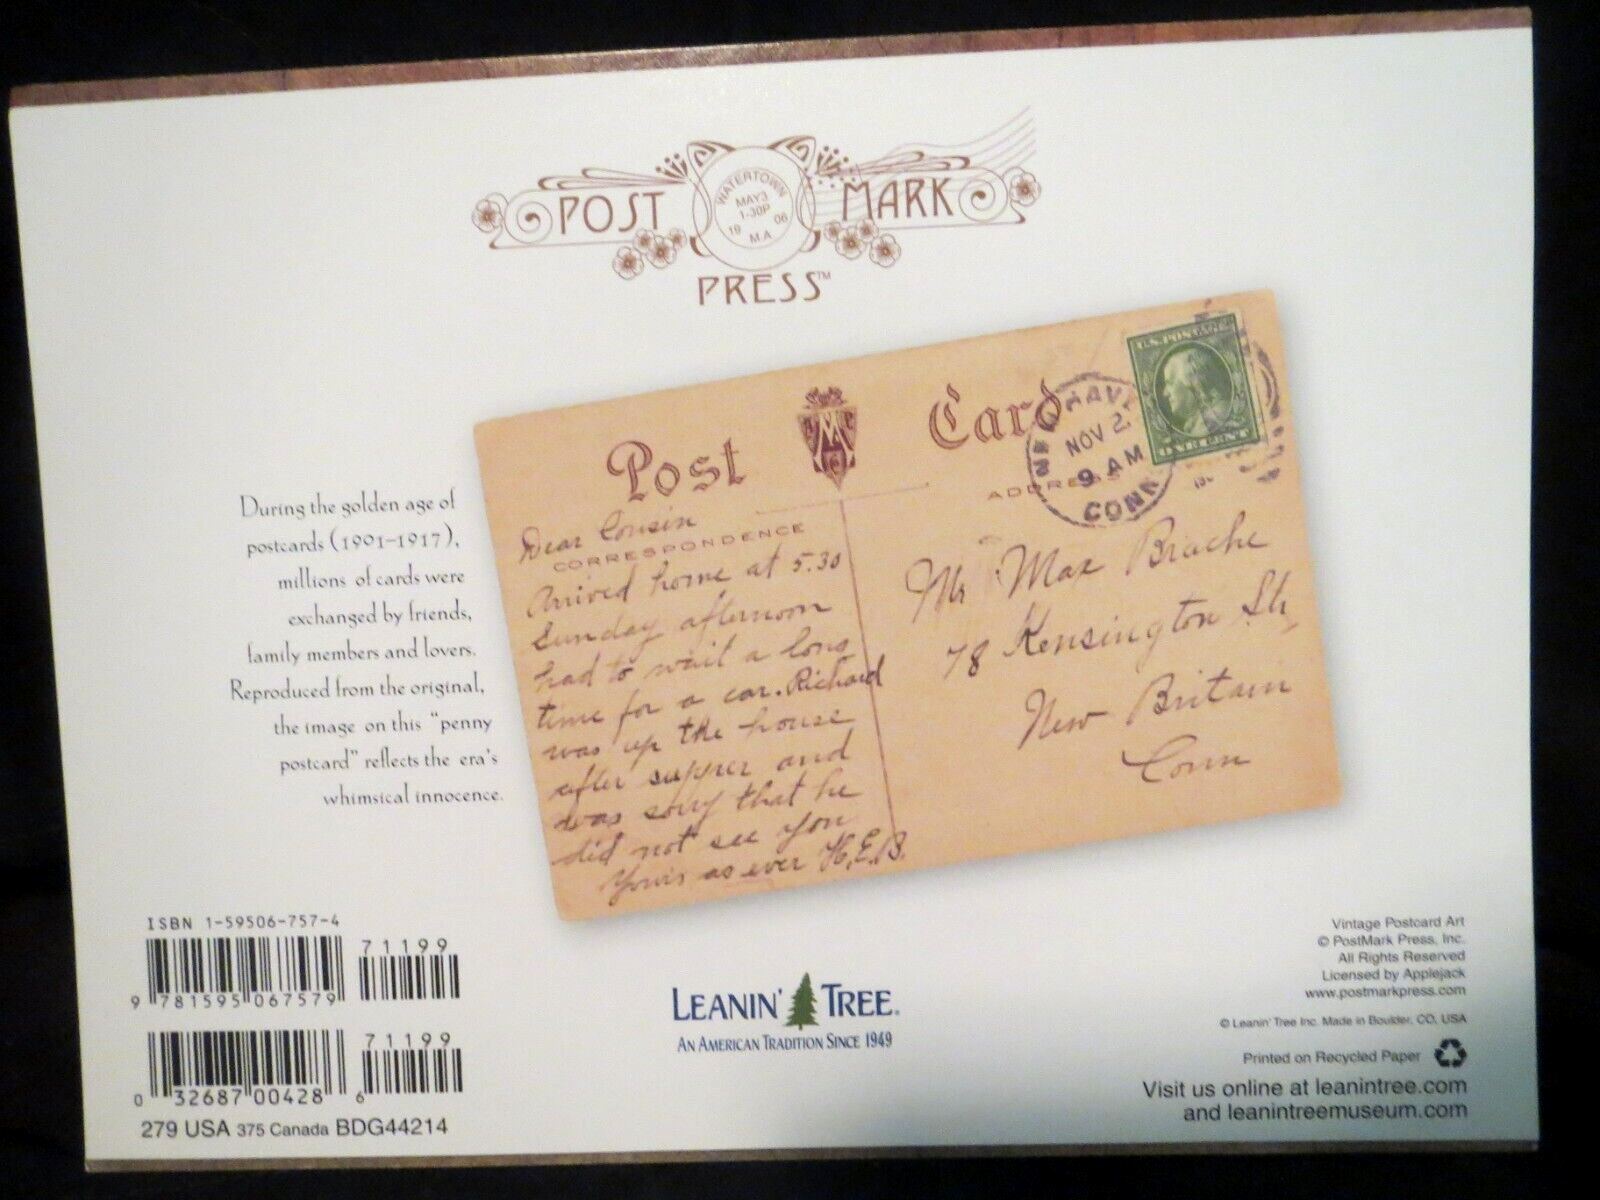 POST MARK
PRESS™
WATERTOWN
MAY 3
1-30P
19 06
M.A
During the golden age of
postcards (1901–1917),
millions of cards were
exchanged by friends,
family members and lovers.
Reproduced from the original,
the image on this "penny
postcard" reflects the era's
whimsical innocence.
Post Card
CORRESPONDENCE
ADDRESS
Dear Cousin
Arrived home at 5.30
Sunday afternoon
had to wait a long
time for a car. Richard
was up the house
after supper and
was sorry that he
did not see you
Yours as ever H.E.B.
NOV 2
9 AM
CONN
U.S. POSTAGE
ONE CENT
Mr Max Brache
78 Kensington St,
New Britain
Conn
ISBN 1-59506-757-4
71199
9 781595 067579
71199
0 32687 00428 6
279 USA 375 Canada BDG44214
LEANIN' TREE®
AN AMERICAN TRADITION SINCE 1949
Vintage Postcard Art
© PostMark Press, Inc.
All Rights Reserved
Licensed by Applejack
www.postmarkpress.com
© Leanin' Tree Inc. Made in Boulder, CO, USA
Printed on Recycled Paper
Visit us online at leanintree.com
and leanintreemuseum.com